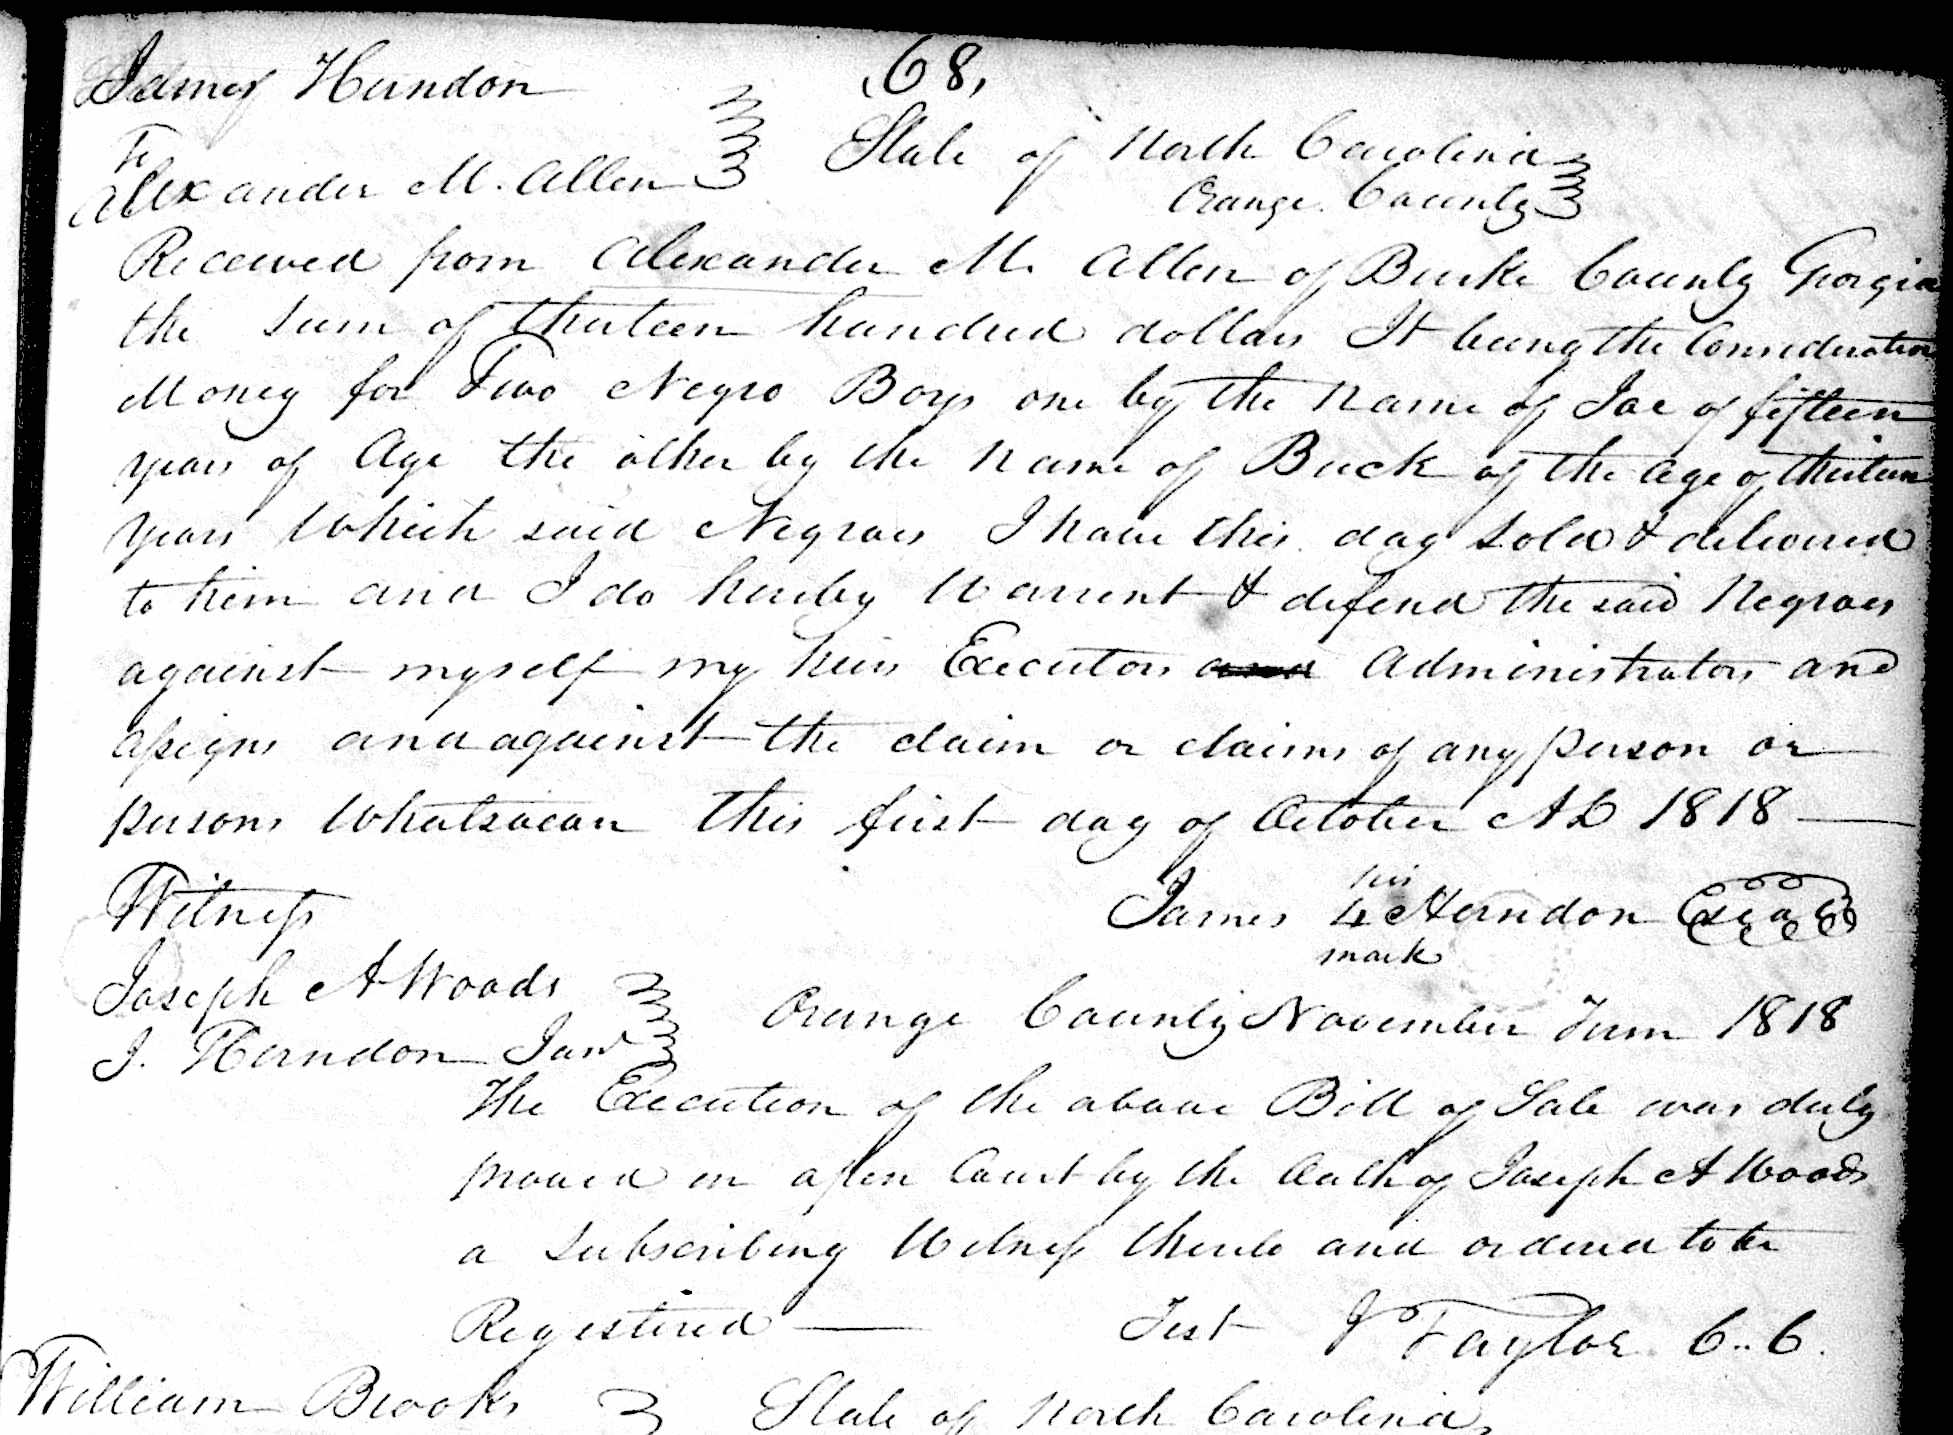 James Herndon
68,
To
Alexander M. Allen
State of North Carolina
Orange County
Received from Alexander M. Allen of Burke County Georgia
the sum of thirteen hundred dollars It being the Consideration
Money for Two Negro Boys one by the name of Joe of fifteen
years of Age the other by the name of Buck of the age of thirteen
years Which said Negroes I have this day sold & delivered
to him and I do hereby Warrent & defend the said Negroes
against myself my heirs Executors and Administrators and
assigns and against the claim or claims of any person or
persons Whatsoever this first day of October AD 1818
Witness
his
James 4 Herndon Seal
mark
Joseph A Woods
J. Herndon Junr
Orange County November Term 1818
The Execution of the above Bill of Sale was duly
proved in open Court by the Oath of Joseph A Woods
a subscribing Witness thereto and ordered to be
Registered
Test J Taylor C.. C.
William Brooks
State of North Carolina